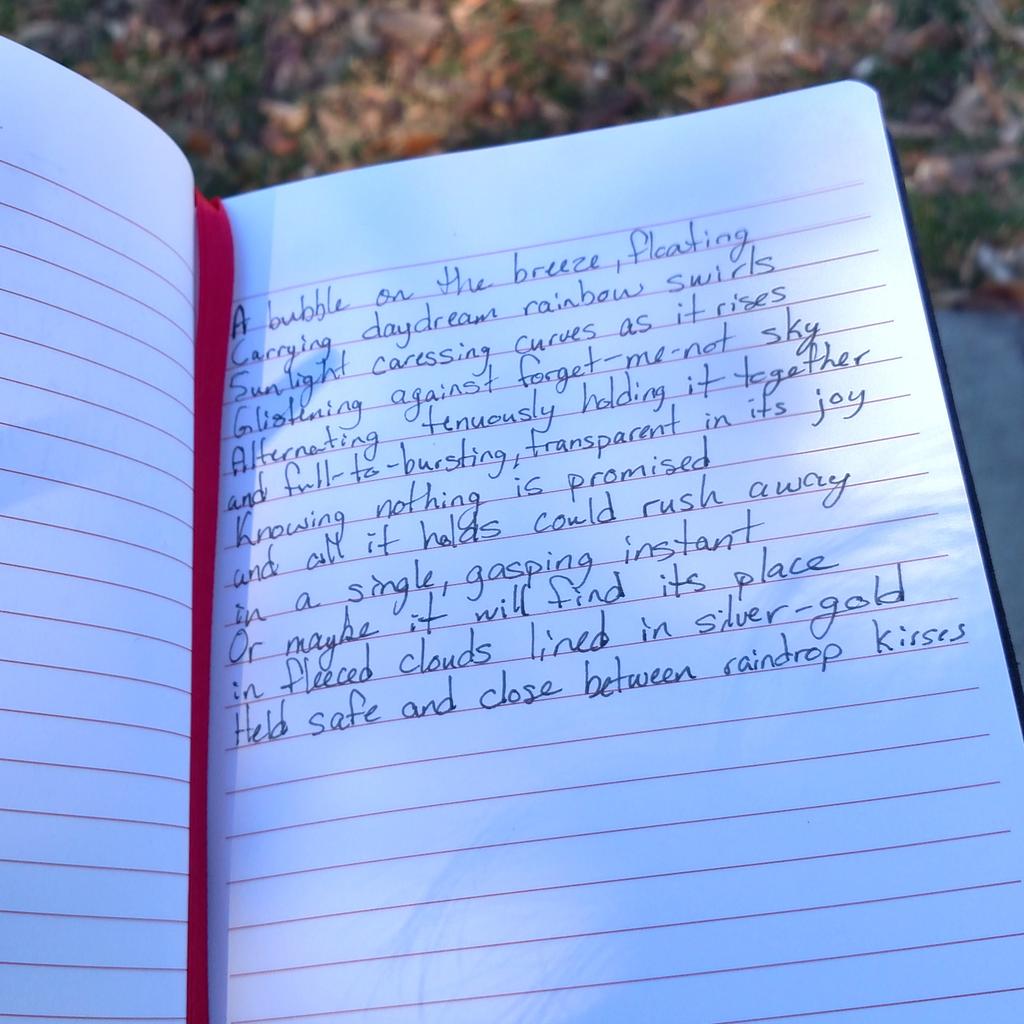 A bubble on the breeze, floating
Carrying daydream rainbow swirls
Sunlight caressing curves as it rises
Glistening against forget-me-not sky
Alternating tenuously holding it together
and full-to-bursting, transparent in its joy
Knowing nothing is promised
and all it holds could rush away
in a single, gasping instant
Or maybe it will find its place
in fleeced clouds lined in silver-gold
Held safe and close between raindrop kisses